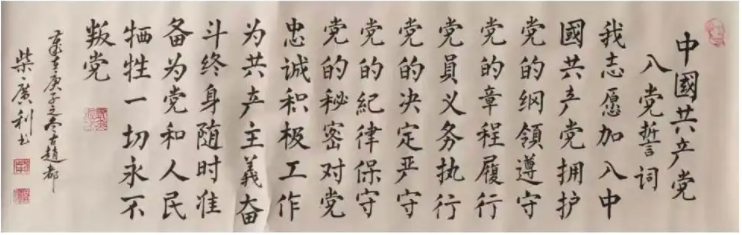 中國共产党
入党誓词
我志愿加入中
國共产党拥护
党的纲领遵守
党的章程履行
党員义务执行
党的决定严守
党的纪律保守
党的秘密对党
忠诚积极工作
为共产主義奋
斗终身随时准
备为党和人民
牺牲一切永不
叛党
歲在庚子之冬古趙都
柴廣利书